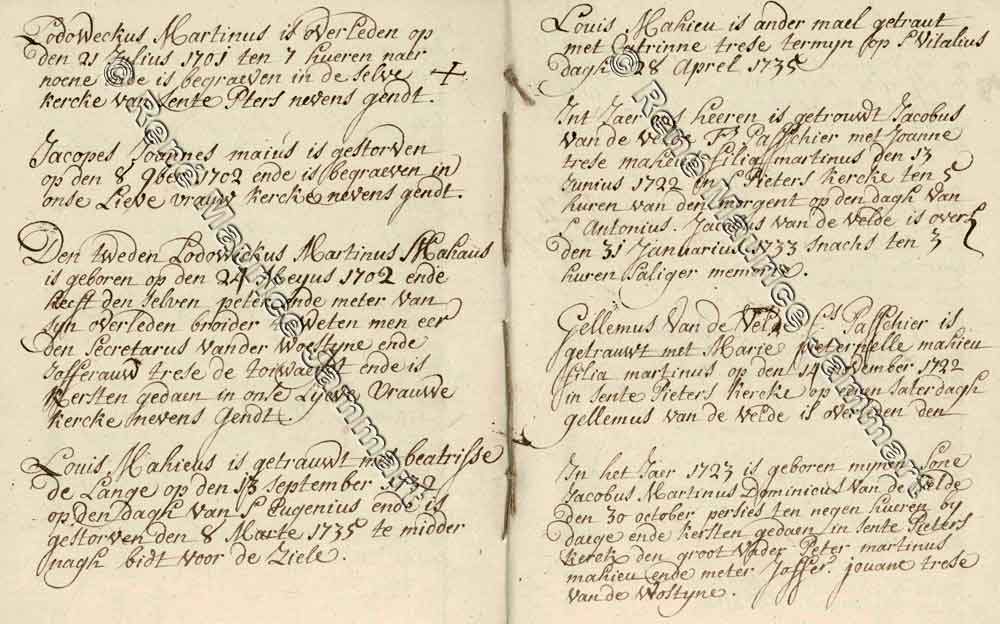 Lodoweckus Martinus is overleden op
den 21 Julius 1701 ten 7 hueren naer
noene ende is begraeven in de selve +
kercke van sente Pters nevens gendt.
Jacopes Joannes maius is gestorven
op den 8 9ber 1702 ende is begraeven in
onse Lieve vrauw kercke nevens gendt.
Den tweden Lodowickus Martinus Mahaus
is geboren op den 24 Meyus 1702 ende
heeft den selven peter ende meter van
syn overleden broider te weten men eer
den Secretarus vander Woestyne ende
Jofferauw trese de ende is
kersten gedaen in onse Lyeve Vrauwe
kercke nevens Gendt
Louis Mahieus is getrauwt met beatrisse
de Lange op den 13 September
op den dagh van S Eugenius ende is
gestorven den 8 Marte 1735 te midder
nagh bidt voor de Ziele.
Louis Mahieu is ander mael getraut
met Catrinne trese termyn op S Vitalius
dagh 28 Aprel 1735
Int Jaer heeren is getrouwdt Jacobus
van de Velde Passchier met Joanne
trese mahieu filia martinus den 13
Junius 1722 in S Pieters kercke ten 5
huren van den morgent op den dagh van
S Antonius. Jacobus van de Velde is over
den 31 Januarius 1733 snachs ten 3
huren saliger memorie.
Gellemus Van de Velde fs Passchier is
getrauwt met Marie pieternelle mahieu
filia martinus op den 14 1722
in sente Pieters kercke op eenen saterdagh
gellemus van de Velde is overleden den
In het Jaer 1723 is geboren mynen sone
Jacobus Martinus Dominicus van de Velde
den 30 october persies ten negen hueren by
daege ende kersten gedaen in sente Pieters
kerck den groot vader Peter martinus
mahieu ende meter Joffer. jouane trese
van de Wostyne.
© Rene Mahieu
© Rene Mahieu